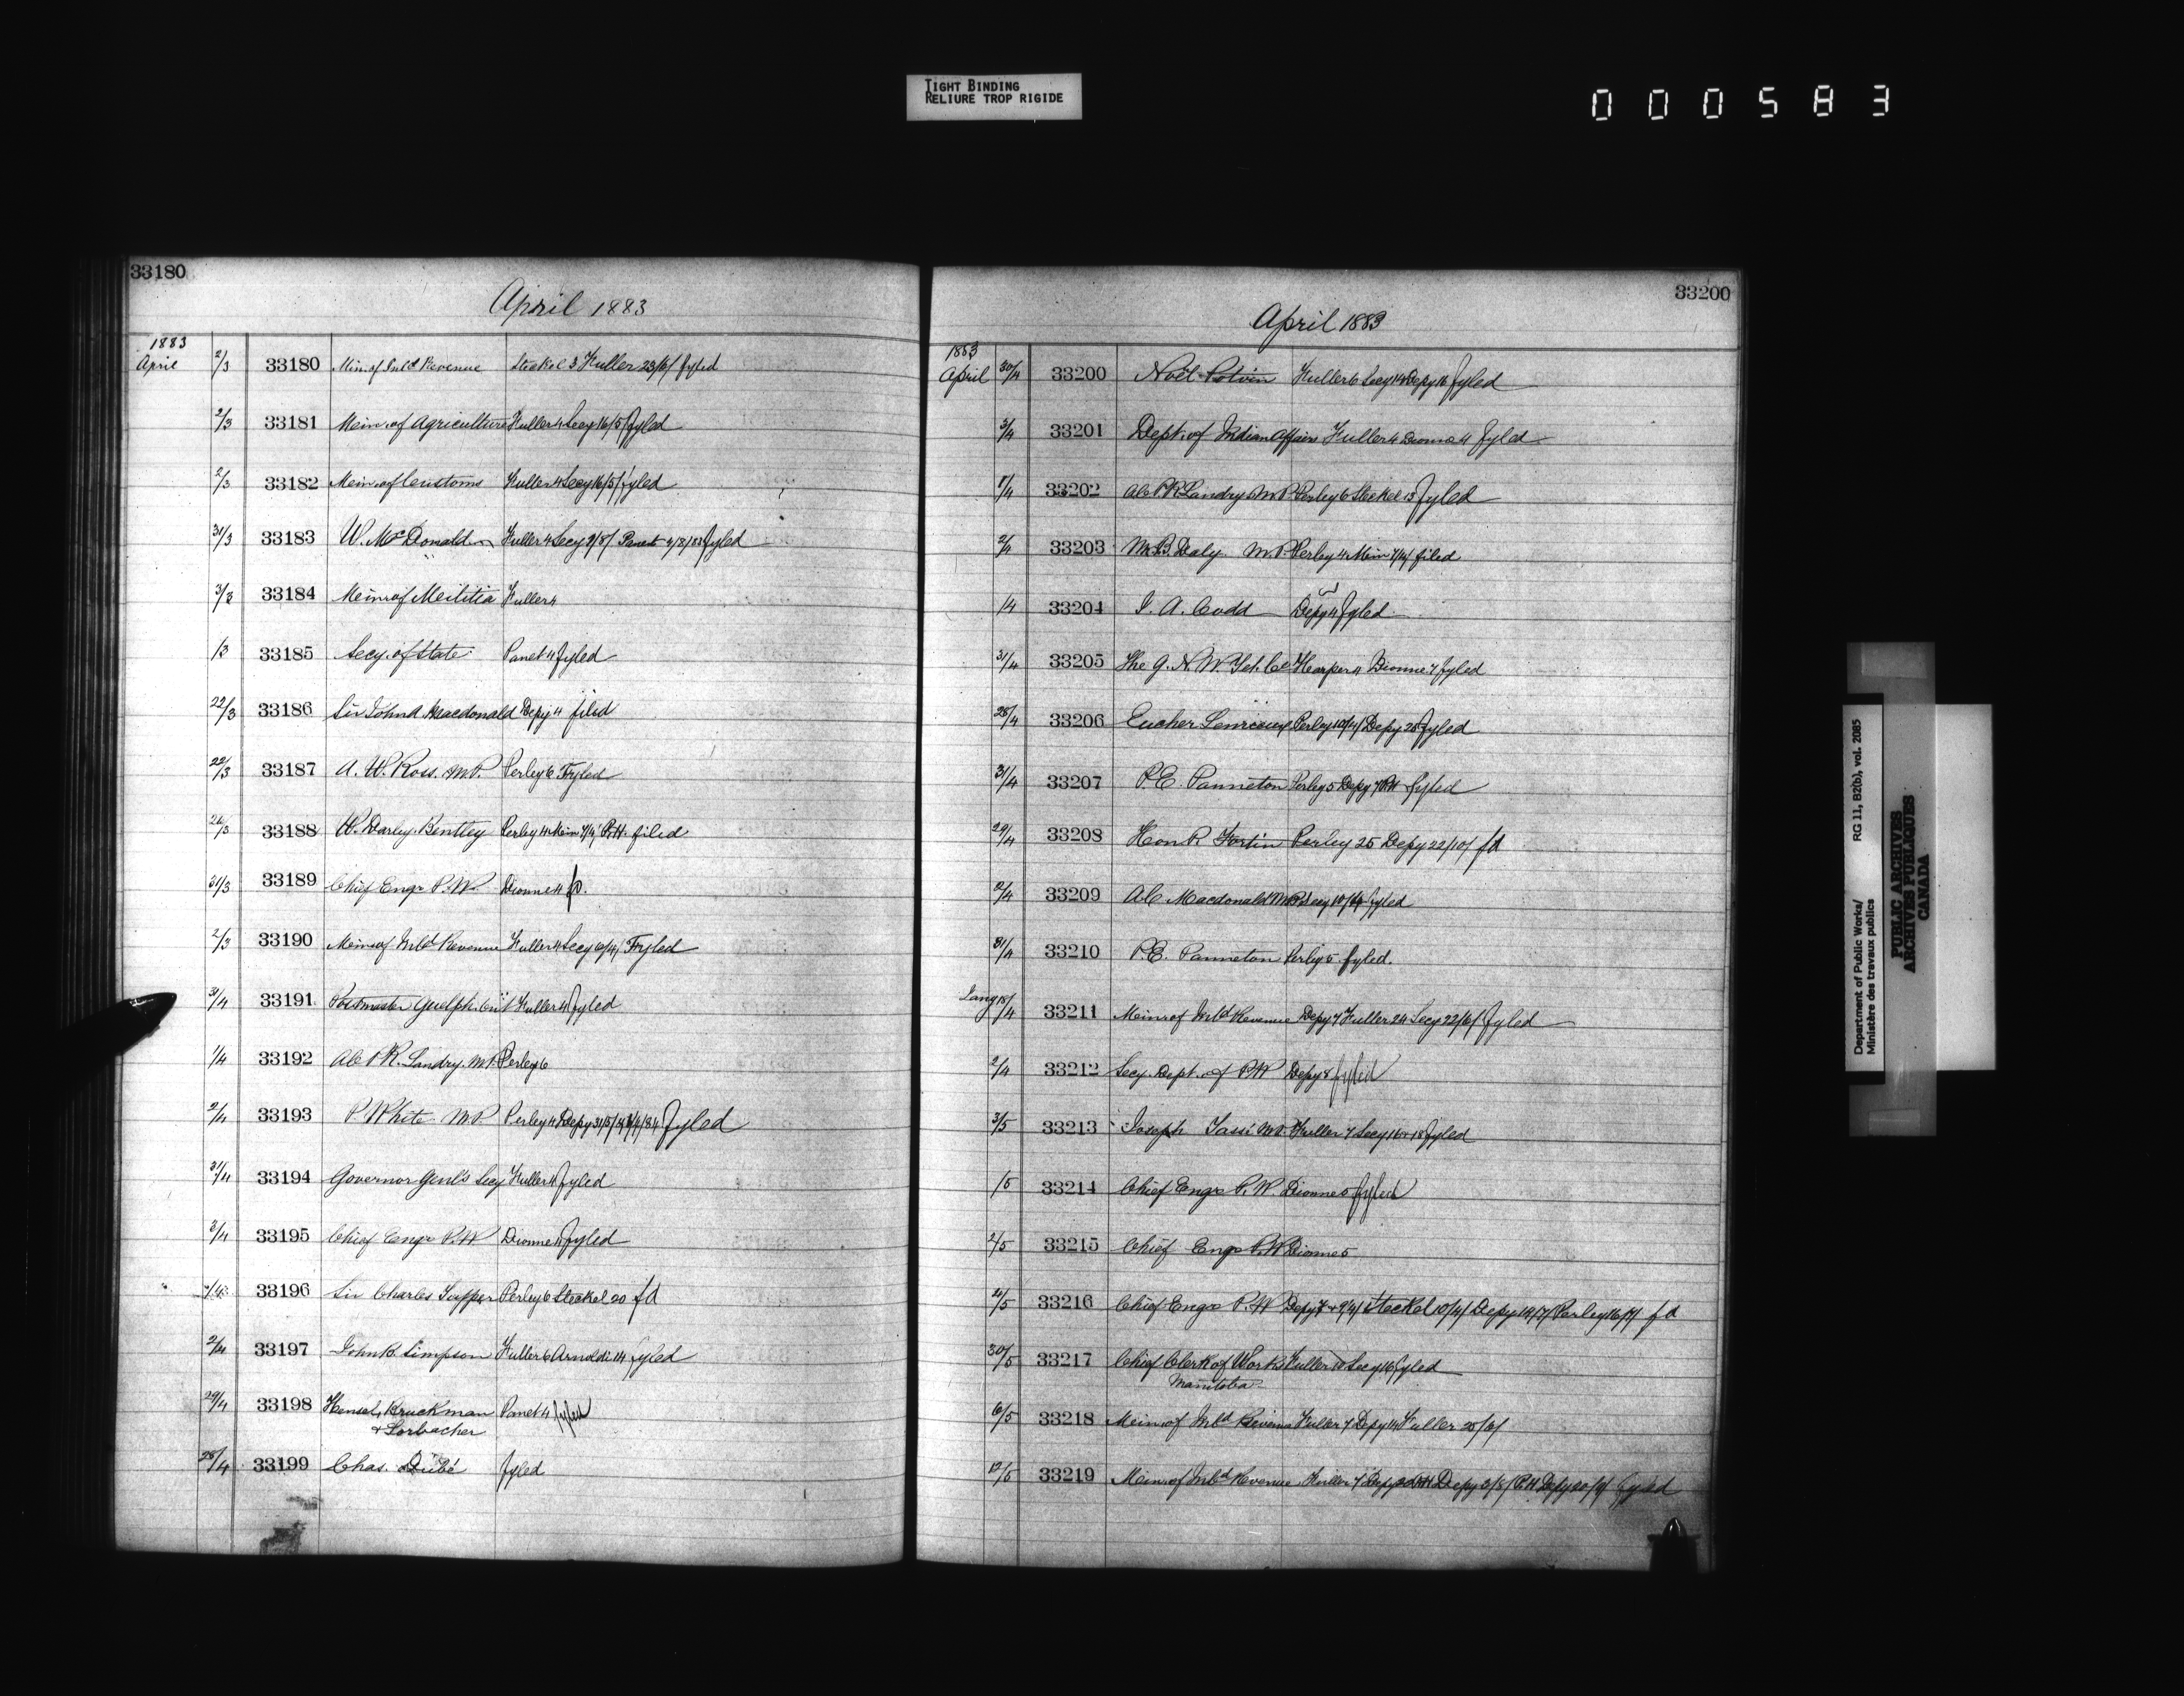 TIGHT BINDING
RELIURE TROP RIGIDE
000583
33180
April 1883
1883
April 2/3 33180 Min. of Inld Revenue Steckel 3 Fuller 23/6/ fyled
2/3 33181 Min. of Agriculture Fuller 4 Secy 16/5/ fyled
2/3 33182 Min. of Customs Fuller 4 Secy 16/5/ fyled
31/3 33183 W. McDonald Fuller 4 Secy 9/8/ Panet 4/8/83 fyled
3/3 33184 Min. of Militia Fuller 4
/3 33185 Secy. of State Panet 4 fyled
22/3 33186 Sir John A Macdonald Depy 4 filed
22/3 33187 A. W. Ross. M.P. Perley 6 Fyled
26/3 33188 W. Darley. Bentley Perley 4 Min 7/4/ P.H. filed
31/3 33189 Chief Engr P.W. Dionne 4 fd.
2/3 33190 Min of Inld Revenue Fuller 4 Secy 6/4/ Fyled
31/4 33191 Postmaster Guelph. Ont Fuller 4 fyled
1/4 33192 P. R. Landry. M.P. Perley 6
2/4 33193 P. White M.P. Perley 4 Depy 31/5/ fyled
31/4 33194 Governor Genl's Secy Fuller 4 fyled
3/4 33195 Chief Engr P.W Dionne 4 fyled
33196 Sir Charles Tupper Perley 6 Steckel 20 fd
2/4 33197 John R. Simpson Fuller 6 Arnoldi 14 fyled
29/4 33198 Hensel, Bruckman Panet 4 fyled
& Lorbacher
28/4 33199 Chas. Dubé fyled
33200
April 1883
1883
April 30/4 33200 Noël Potvin Fuller 6 Secy 14 Depy 16 fyled
3/4 33201 Dept. of Indian Affairs Fuller 4 Dionne 4 fyled
1/4 33202 P. R Landry M.P. Perley 6 Steckel 13 fyled
2/4 33203 M. B. Daly. M.P. Perley 4 Min 7/4/ filed
/4 33204 J. A. Codd Depy 4 fyled
31/4 33205 The G. N. W. Tel. Co Harper 4 Dionne 7 fyled
28/4 33206 Eucher Perley 10/4/ Depy 28 fyled
31/4 33207 P. E. Panneton Perley 5 Depy 7 P.H fyled
29/4 33208 Hon P. Fortin Perley 25 Depy 22/10/ fd
2/4 33209 A. C. Macdonald M.P. Secy 10/4 fyled
31/4 33210 P. E. Panneton Perley 5 fyled.
18/4 33211 Min. of Inld Revenue Depy 7 Fuller 24 Secy 22/6/ fyled
2/4 33212 Secy. Dept. of P.W Depy 8 fyled
3/5 33213 Joseph Tassé M.P. Fuller 7 Secy 16 + 18 fyled
/5 33214 Chief Engr P. W. Dionne 5 fyled
2/5 33215 Chief Engr P. W Dionne 5
2/5 33216 Chief Engr P. W Depy 7 + 9/4/ Steckel 10/4/ Depy 14/7/ Perley 16/7/ fd
30/5 33217 Chief Clerk of Works Fuller 10 Secy 16 fyled
Manitoba
6/5 33218 Min. of Inld Revenue Fuller 7 Depy 14 Fuller 25/6/
12/5 33219 Min. of Inld Revenue Fuller 7 Depy P.H Depy 3/8/ P.H Depy 20/9/ fyled
Department of Public Works/ RG 11, B2(b), vol. 2085
Ministère des travaux publics
PUBLIC ARCHIVES
ARCHIVES PUBLIQUES
CANADA